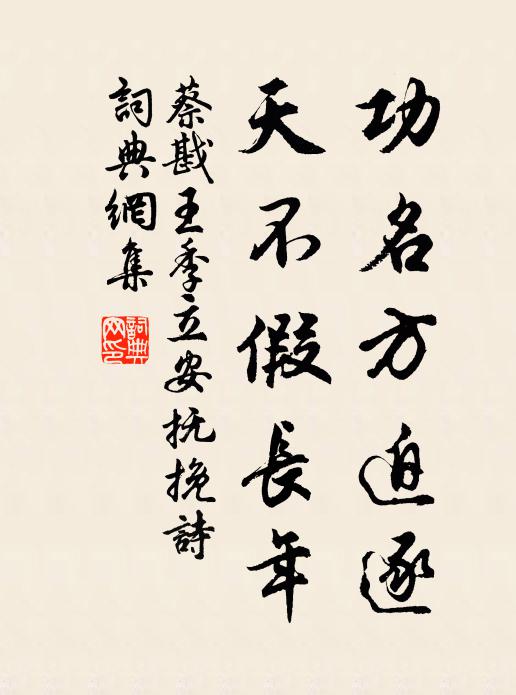 功名方迫逐
天不假長年
蔡戡王季立安抚挽詩
詞典網集
詞典网印